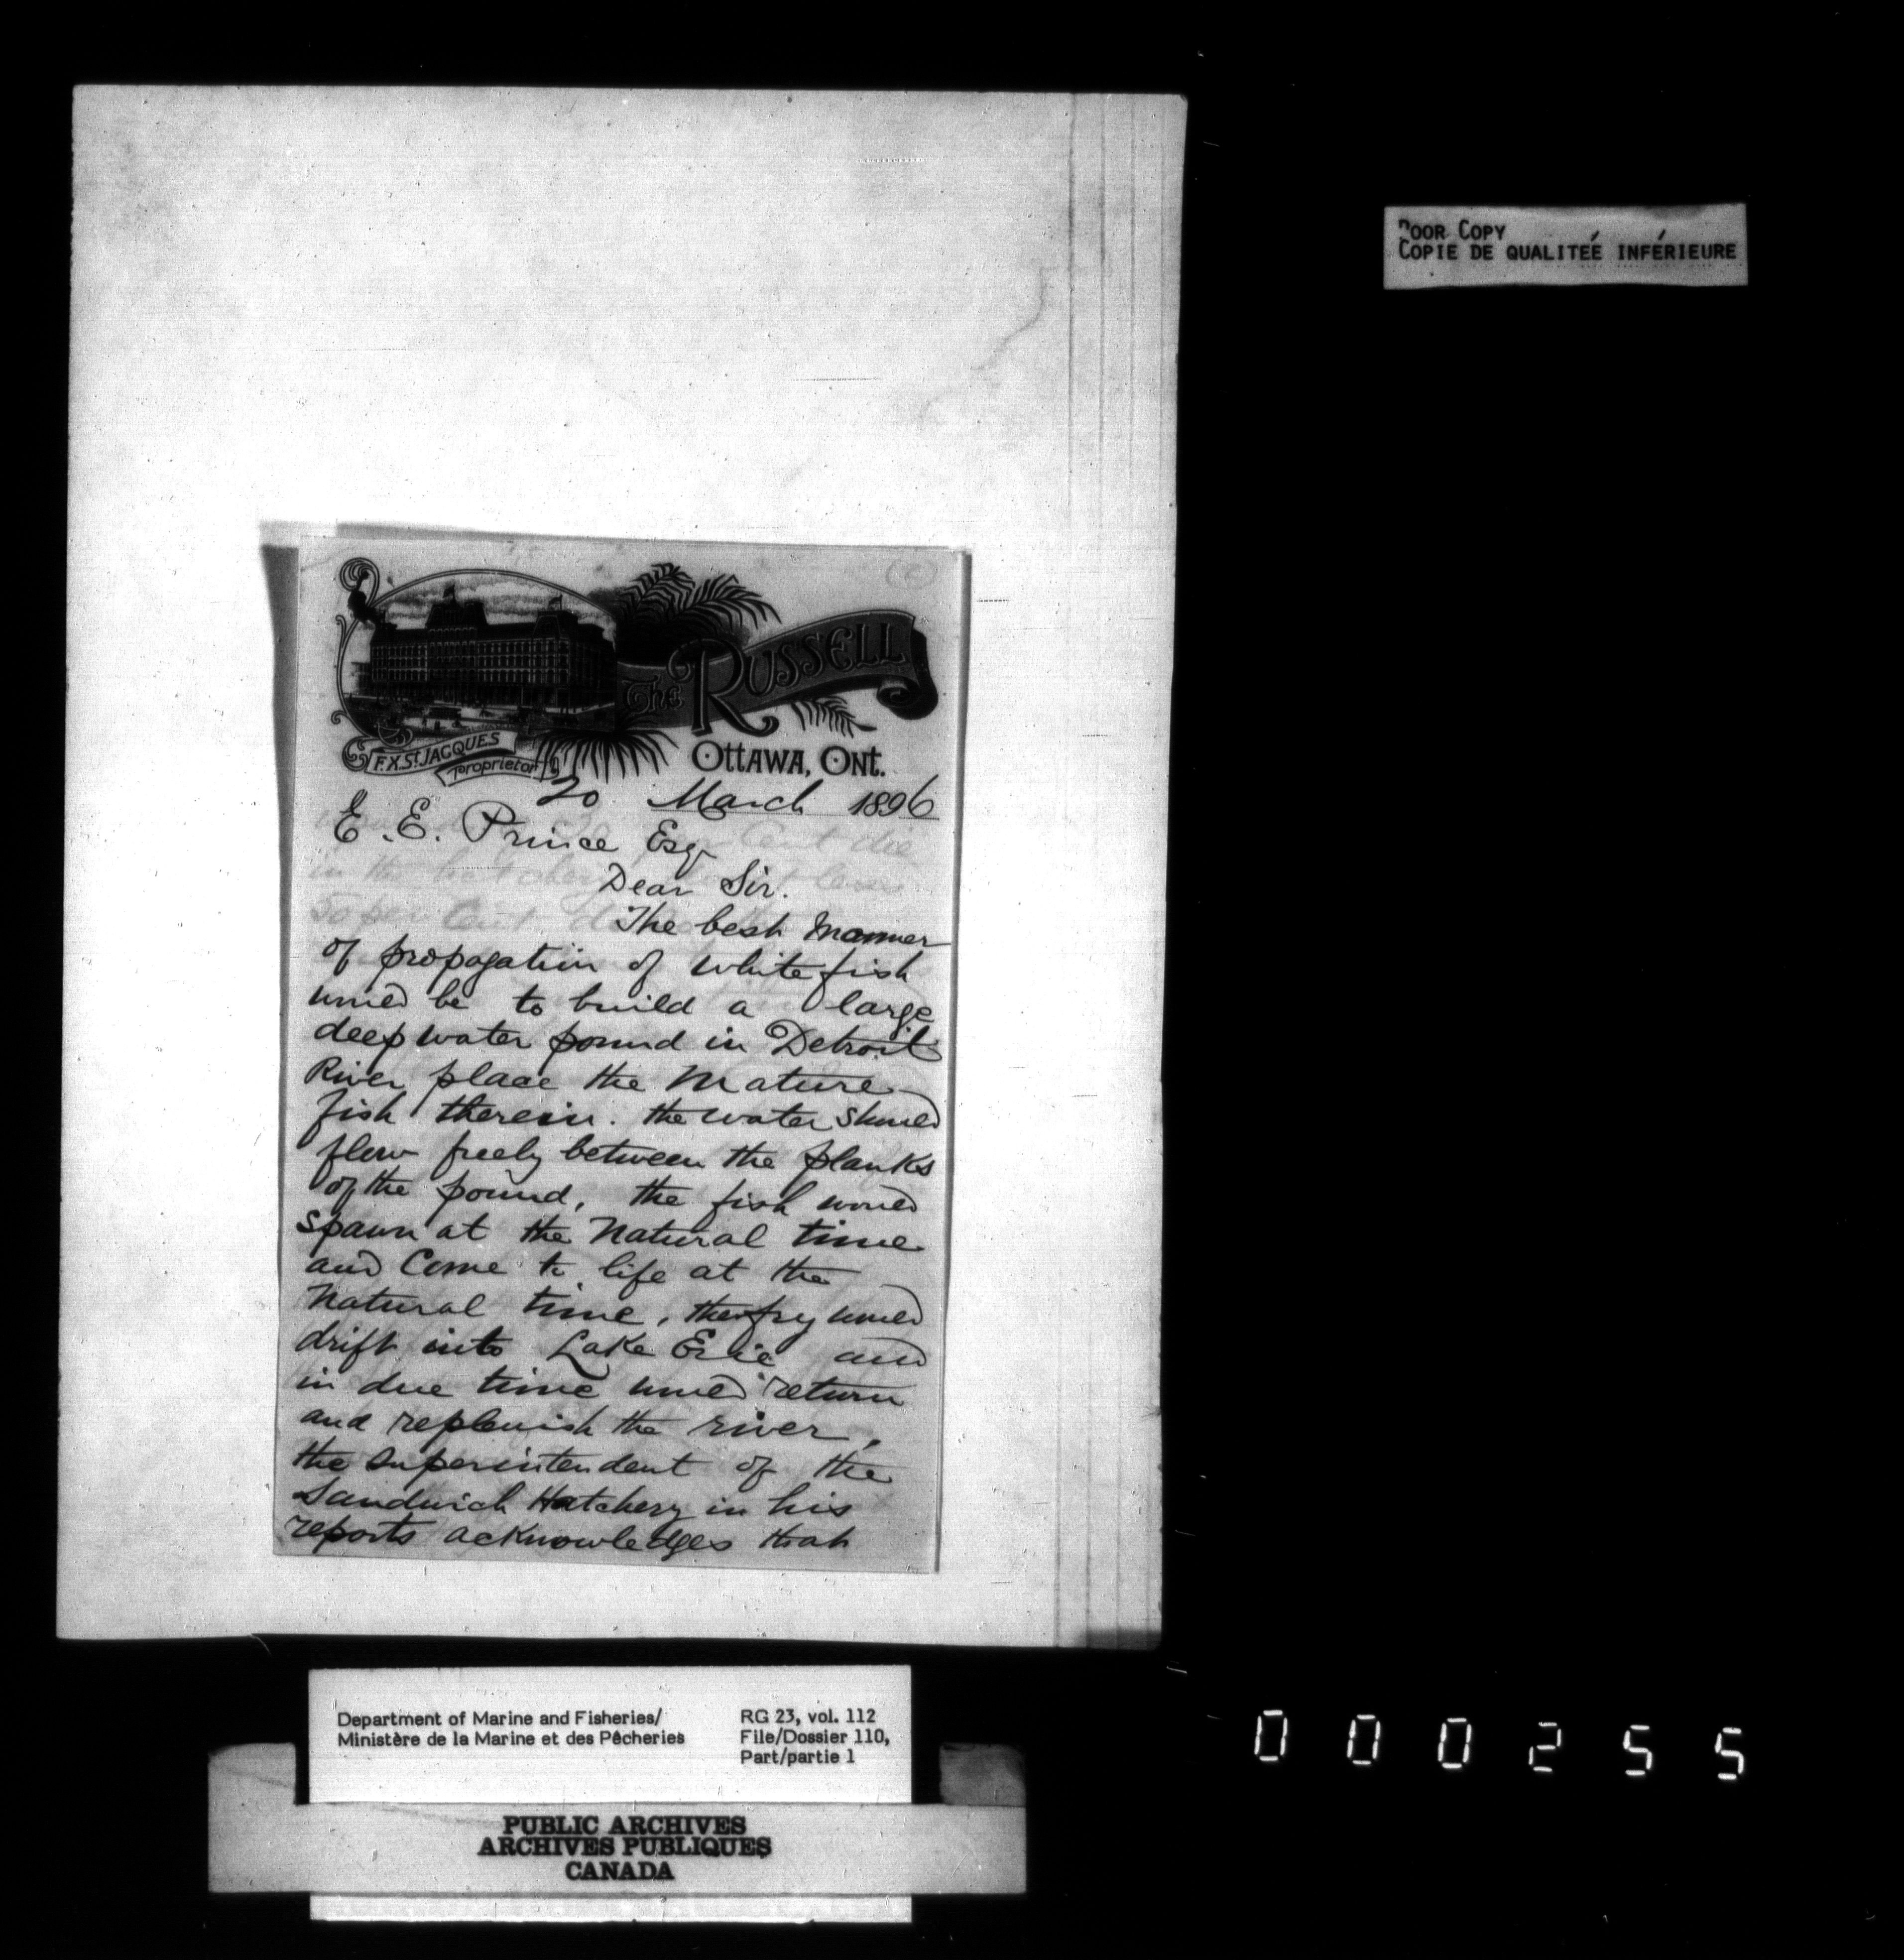 POOR COPY
COPIE DE QUALITEÉ INFÉRIEURE
The RUSSELL
F.X. St. JACQUES
proprietor
OTTAWA, ONT.
20 March 1896
E. E. Prince Esq
Dear Sir.
The best manner
of propagation of white fish
would be to build a large
deep water pound in Detroit
River place the mature
fish therein. the water should
flow freely between the planks
of the pound, the fish would
spawn at the natural time
and come to life at the
natural time, the fry would
drift into Lake Erie and
in due time would return
and replenish the river,
the Superintendent of the
Sandwich Hatchery in his
reports acknowledges that
Department of Marine and Fisheries/
Ministère de la Marine et des Pêcheries
RG 23, vol. 112
File/Dossier 110,
Part/partie 1
PUBLIC ARCHIVES
ARCHIVES PUBLIQUES
CANADA
000255